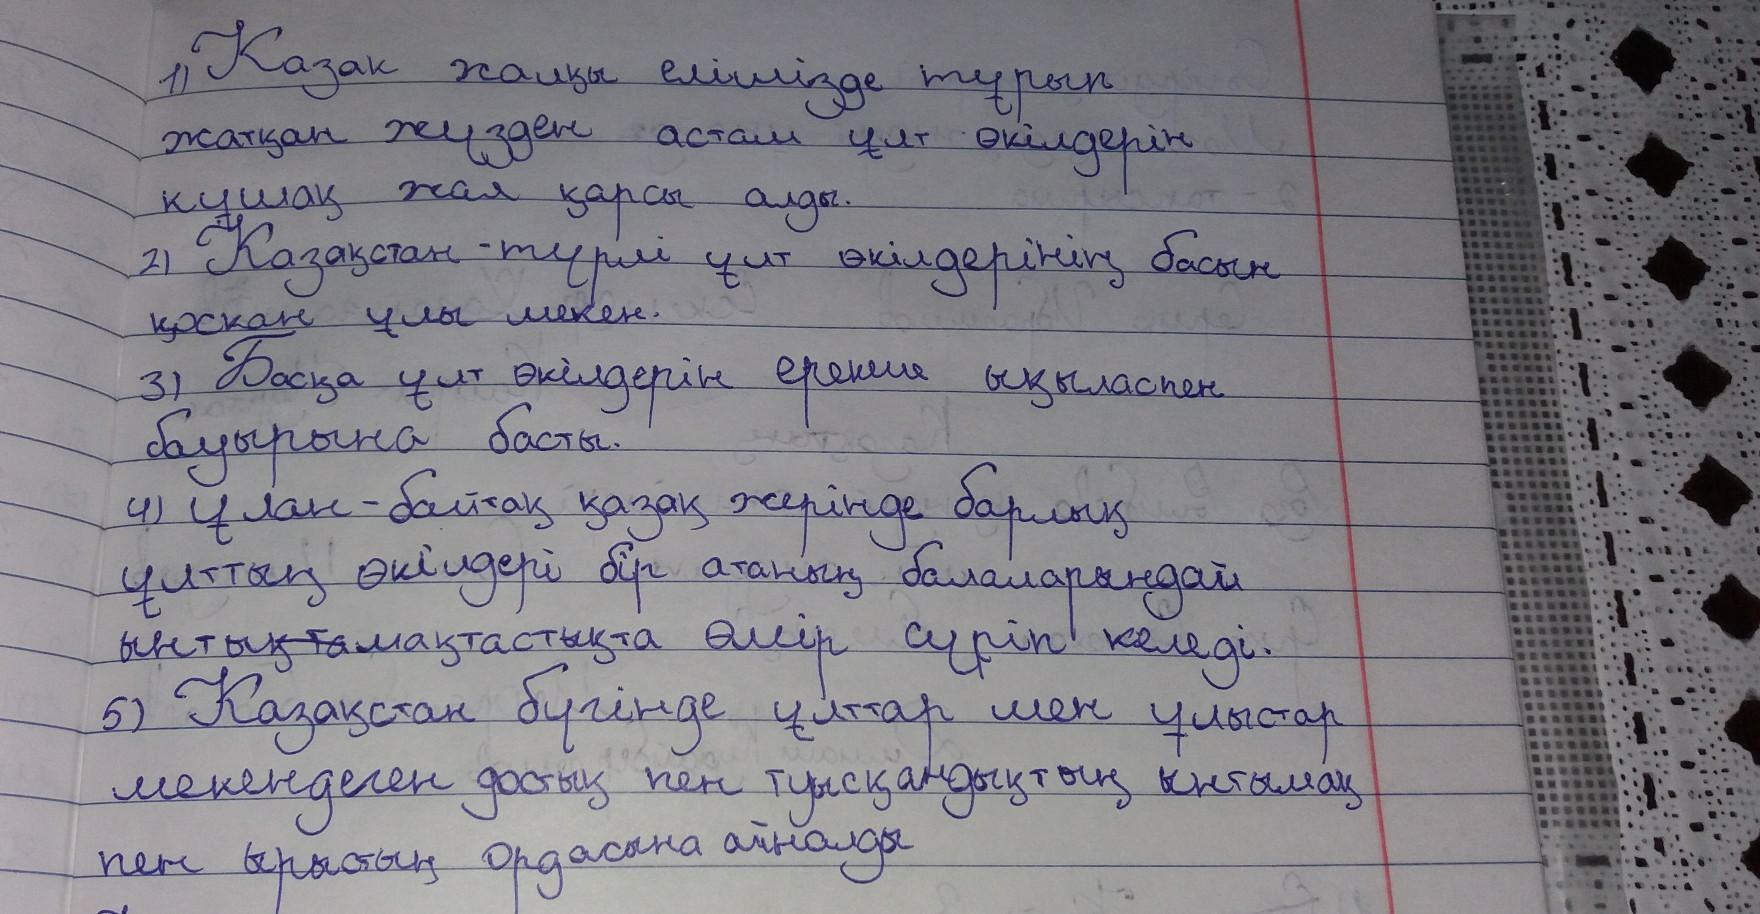 1) Казак халқы елімізде тұрып
жатқан жүзден астам ұлт өкілдерін
құшақ жая қарсы алды.
2) Казақстан-түрлі ұлт өкілдерінің басын
қоскан ұлы мекен.
3) Басқа ұлт өкілдерін ерекше ықыласпен
бауырына басты.
4) Ұлан-байтақ қазақ жерінде барлық
ұлттың өкілдері бір атаның балаларындай
ынтымақтастықта өмір сүріп келеді.
5) Казақстан бүгінде ұлттар мен ұлыстар
мекендеген достық пен туысқандықтың ынтымақ
пен ырыстың ордасына айналды